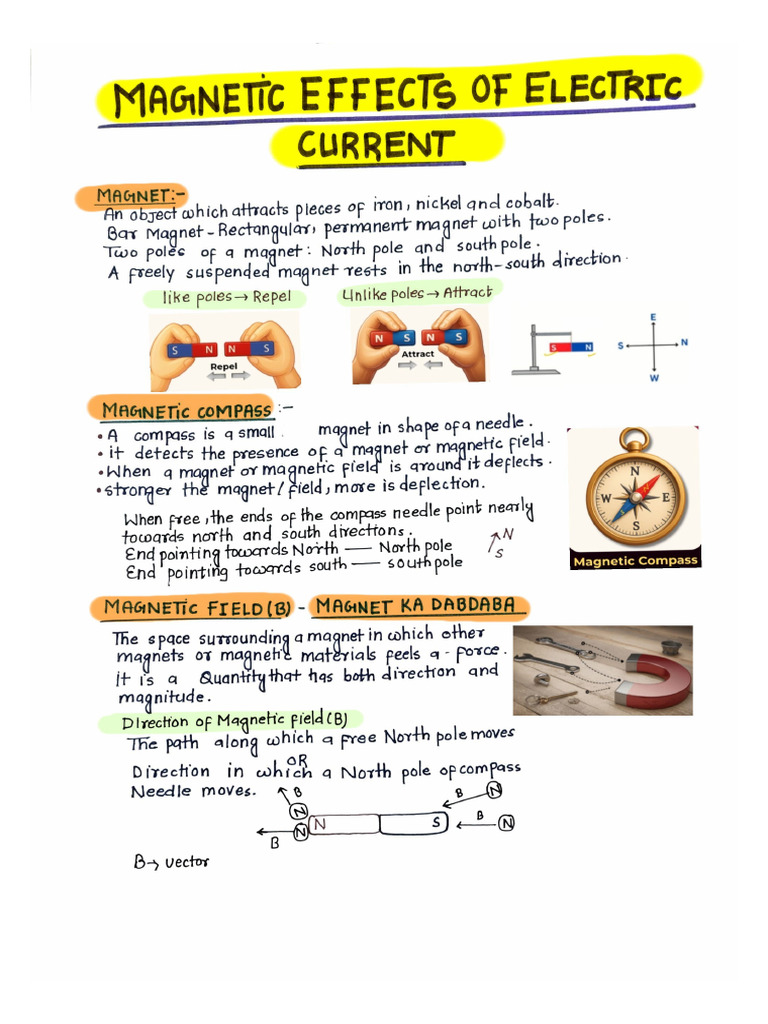 MAGNETIC EFFECTS OF ELECTRIC
CURRENT
MAGNET:-
An object which attracts pieces of iron, nickel and cobalt.
Bar Magnet - Rectangular, permanent magnet with two poles.
Two poles of a magnet: North pole and south pole.
A freely suspended magnet rests in the north-south direction.
like poles → Repel
Unlike poles → Attract
S N N S
Repel
N S N S
Attract
S N
E
S N
W
MAGNETIC COMPASS :-
• A compass is a small magnet in shape of a needle.
• it detects the presence of a magnet or magnetic field.
• When a magnet or magnetic field is around it deflects.
• stronger the magnet/field, more is deflection.
When free, the ends of the compass needle point nearly
towards north and south directions.
End pointing towards North — North pole
End pointing towards south — south pole
N
S
N
W E
S
Magnetic Compass
MAGNETIC FIELD (B) - MAGNET KA DABDABA
The space surrounding a magnet in which other
magnets or magnetic materials feels a force.
it is a Quantity that has both direction and
magnitude.
Direction of Magnetic field (B)
The path along which a free North pole moves
OR
Direction in which a North pole of compass
Needle moves.
B N B N
N N S B N
B
B → vector